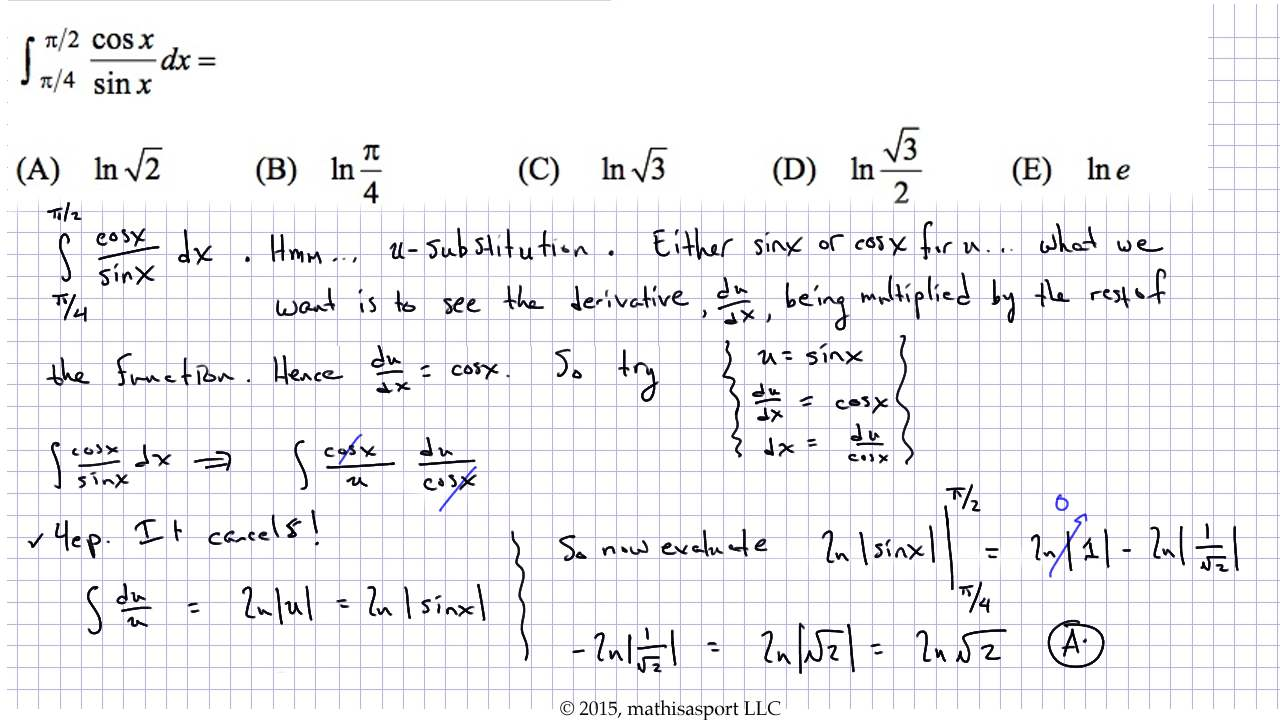 ∫ π/2 π/4 cos x / sin x dx =
(A) ln √2 (B) ln π/4 (C) ln √3 (D) ln √3/2 (E) ln e
∫ π/2 π/4 cosx / sinx dx . Hmm... u-substitution. Either sinx or cosx for u... what we
want is to see the derivative, du/dx, being multiplied by the rest of
the function. Hence du/dx = cosx. So try { u = sinx
du/dx = cosx
dx = du/cosx }
∫ cosx/sinx dx ⇒ ∫ cosx/u du/cosx
✓ Yep. It cancels!
∫ du/u = ln|u| = ln|sinx|
} So now evaluate ln|sinx| | π/2 π/4 = ln|1| 0 - ln|1/√2|
-ln|1/√2| = ln|√2| = ln√2 (A.)
© 2015, mathisasport LLC